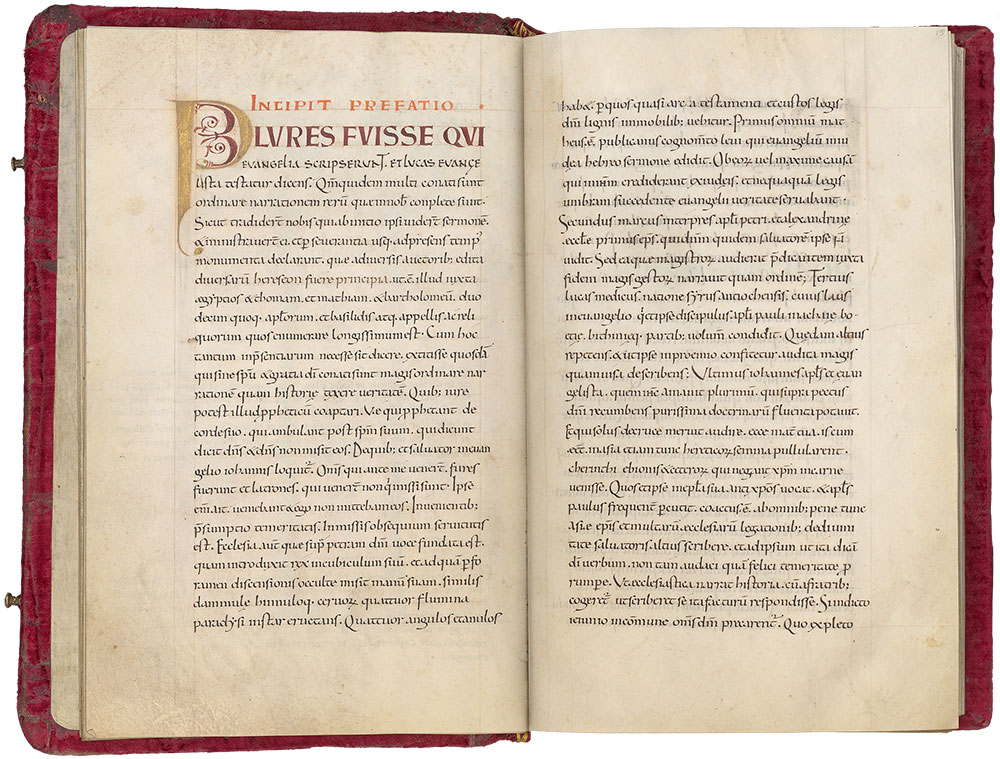 INCIPIT PREFATIO .
PLVRES FVISSE QVI
EVANGELIA SCRIPSERUNT. ET LUCAS EVANGE
lista testatur dicens. Qm̄quidem multi conatisunt
ordinare narrationem rerū quæ innob̄ complete sunt.
Sicut tradider̄t nobis qui abinitio ipsi uider̄t sermonē.
& ministrauer̄t ei. et perseuerantia usq; adpresens temp͛
monumenta declarant. quæ adiuersis auctorib; edita
diuersarū hereseon fuere principia. ut ē illud iuxta
ægyptios & thomam. et mathiam. & bartholomeū. duo
decim quoq; apl̄orum. et basilidis atq; appellis. ac reli
quorum quos enumerare longissimum est. Cum hoc
tantum inp̄sentiarum necesse sit dicere. extitisse quosdā
qui sine sp̄u & gratia dī conati sunt magis ordinare nar
rationem quam historię texere veritatē. Quib; iure
potest illud p̱pheticū coaptari. Vę qui p̱phetant de
corde suo. qui ambulant post sp̄m suum. qui dicunt
dicit dn̄s & dn̄s non misit eos. Dequib; et saluator ineuan
gelio iohannis loquit᷒. Om̄s qui ante me uener̄t. fures
fuerunt et latrones. qui uener̄t non q' missi sunt. Ipse
em̄. ait. ueniebant & ego non mittebam eos. Inuenientib;
p̄sumptio temeritatis. Inmissis obsequium seruitutis
est. Ecclesia. aut̄ quæ sup̱ petram dn̄i uoce fundata est.
quam introduxit rex incubiculum suū. et ad quā p̱ fo
ramen discensionis occulte misit manū suam. similis
dammulę hinnuloq; ceruoꝝ quattuor flumina
paradysi instar eructans. Quattuor angulos et anulos
habæ. p̱ quos quasi arca testamenti et custos legis
dn̄i lignis immobilib; uehitur. Primus omniū mat
heus ē. publicanus cognom̄to leui qui euangeliū iniu
dea hebreo sermone edidit. Ob eor̄ uel maxime causā
qui in ihm̄ crediderant exiudeis. et nequaquā legis
umbram succedente euangelii ueritate seruabant.
Secundus marcus interpres. apl̄i petri. et alexandrine
eccl̄e primus ep̄s. qui dn̄m quidem saluatorē ipse n̄
uidit. Sed ea quæ magistꝝ audierat p̄dicantem iuxta
fidem magis gestoꝝ narrauit quam ordinē; Tertius
lucas medicus. natione syrus antiochensis. cuius laus
ineuangelio q' et ipse discipulus. apl̄i pauli in achaię bo
etię. bithiniꝗ; partib; uolum̄ condidit. Quędam altius
repetens. & ut ipse inproemio confitetur audita magis
quam uisa describens; Vltimus iohannes. apl̄s et euan
gelista. quem ihc̄ amauit plurimū. qui supra pectus
dn̄i recumbens purissima doctrinarū fluenta potauit.
Et qui solus decruce meruit audire. ecce mat̄ tua. is cum
ēēt. in asia et iam tunc hereticoꝝ semina pullularent.
cherinthi ebionis & ceteroꝝ qui negant xp̄m in carne
uenisse. Quos et ipse in epl̄a sua antixp̄os uocat. & apl̄s
paulus frequent̄ p̱cutit. coactus ē. abomnib; pene tunc
asię ep̄is et multarū. ecclesiarū legationib; dediuini
tate saluatoris altius scribere. et adipsum ut ita dicā
dī uerbum. non tam audaci quā felici temeritate p̱
rumpe. Vt ecclesiastica narrat historia. cū afratrib;
cogeret᷒ ut scriberet se ita facturū respondisse. Si indicto
ieiunio incommune om̄s dm̄ precarent᷒. Quo expleto